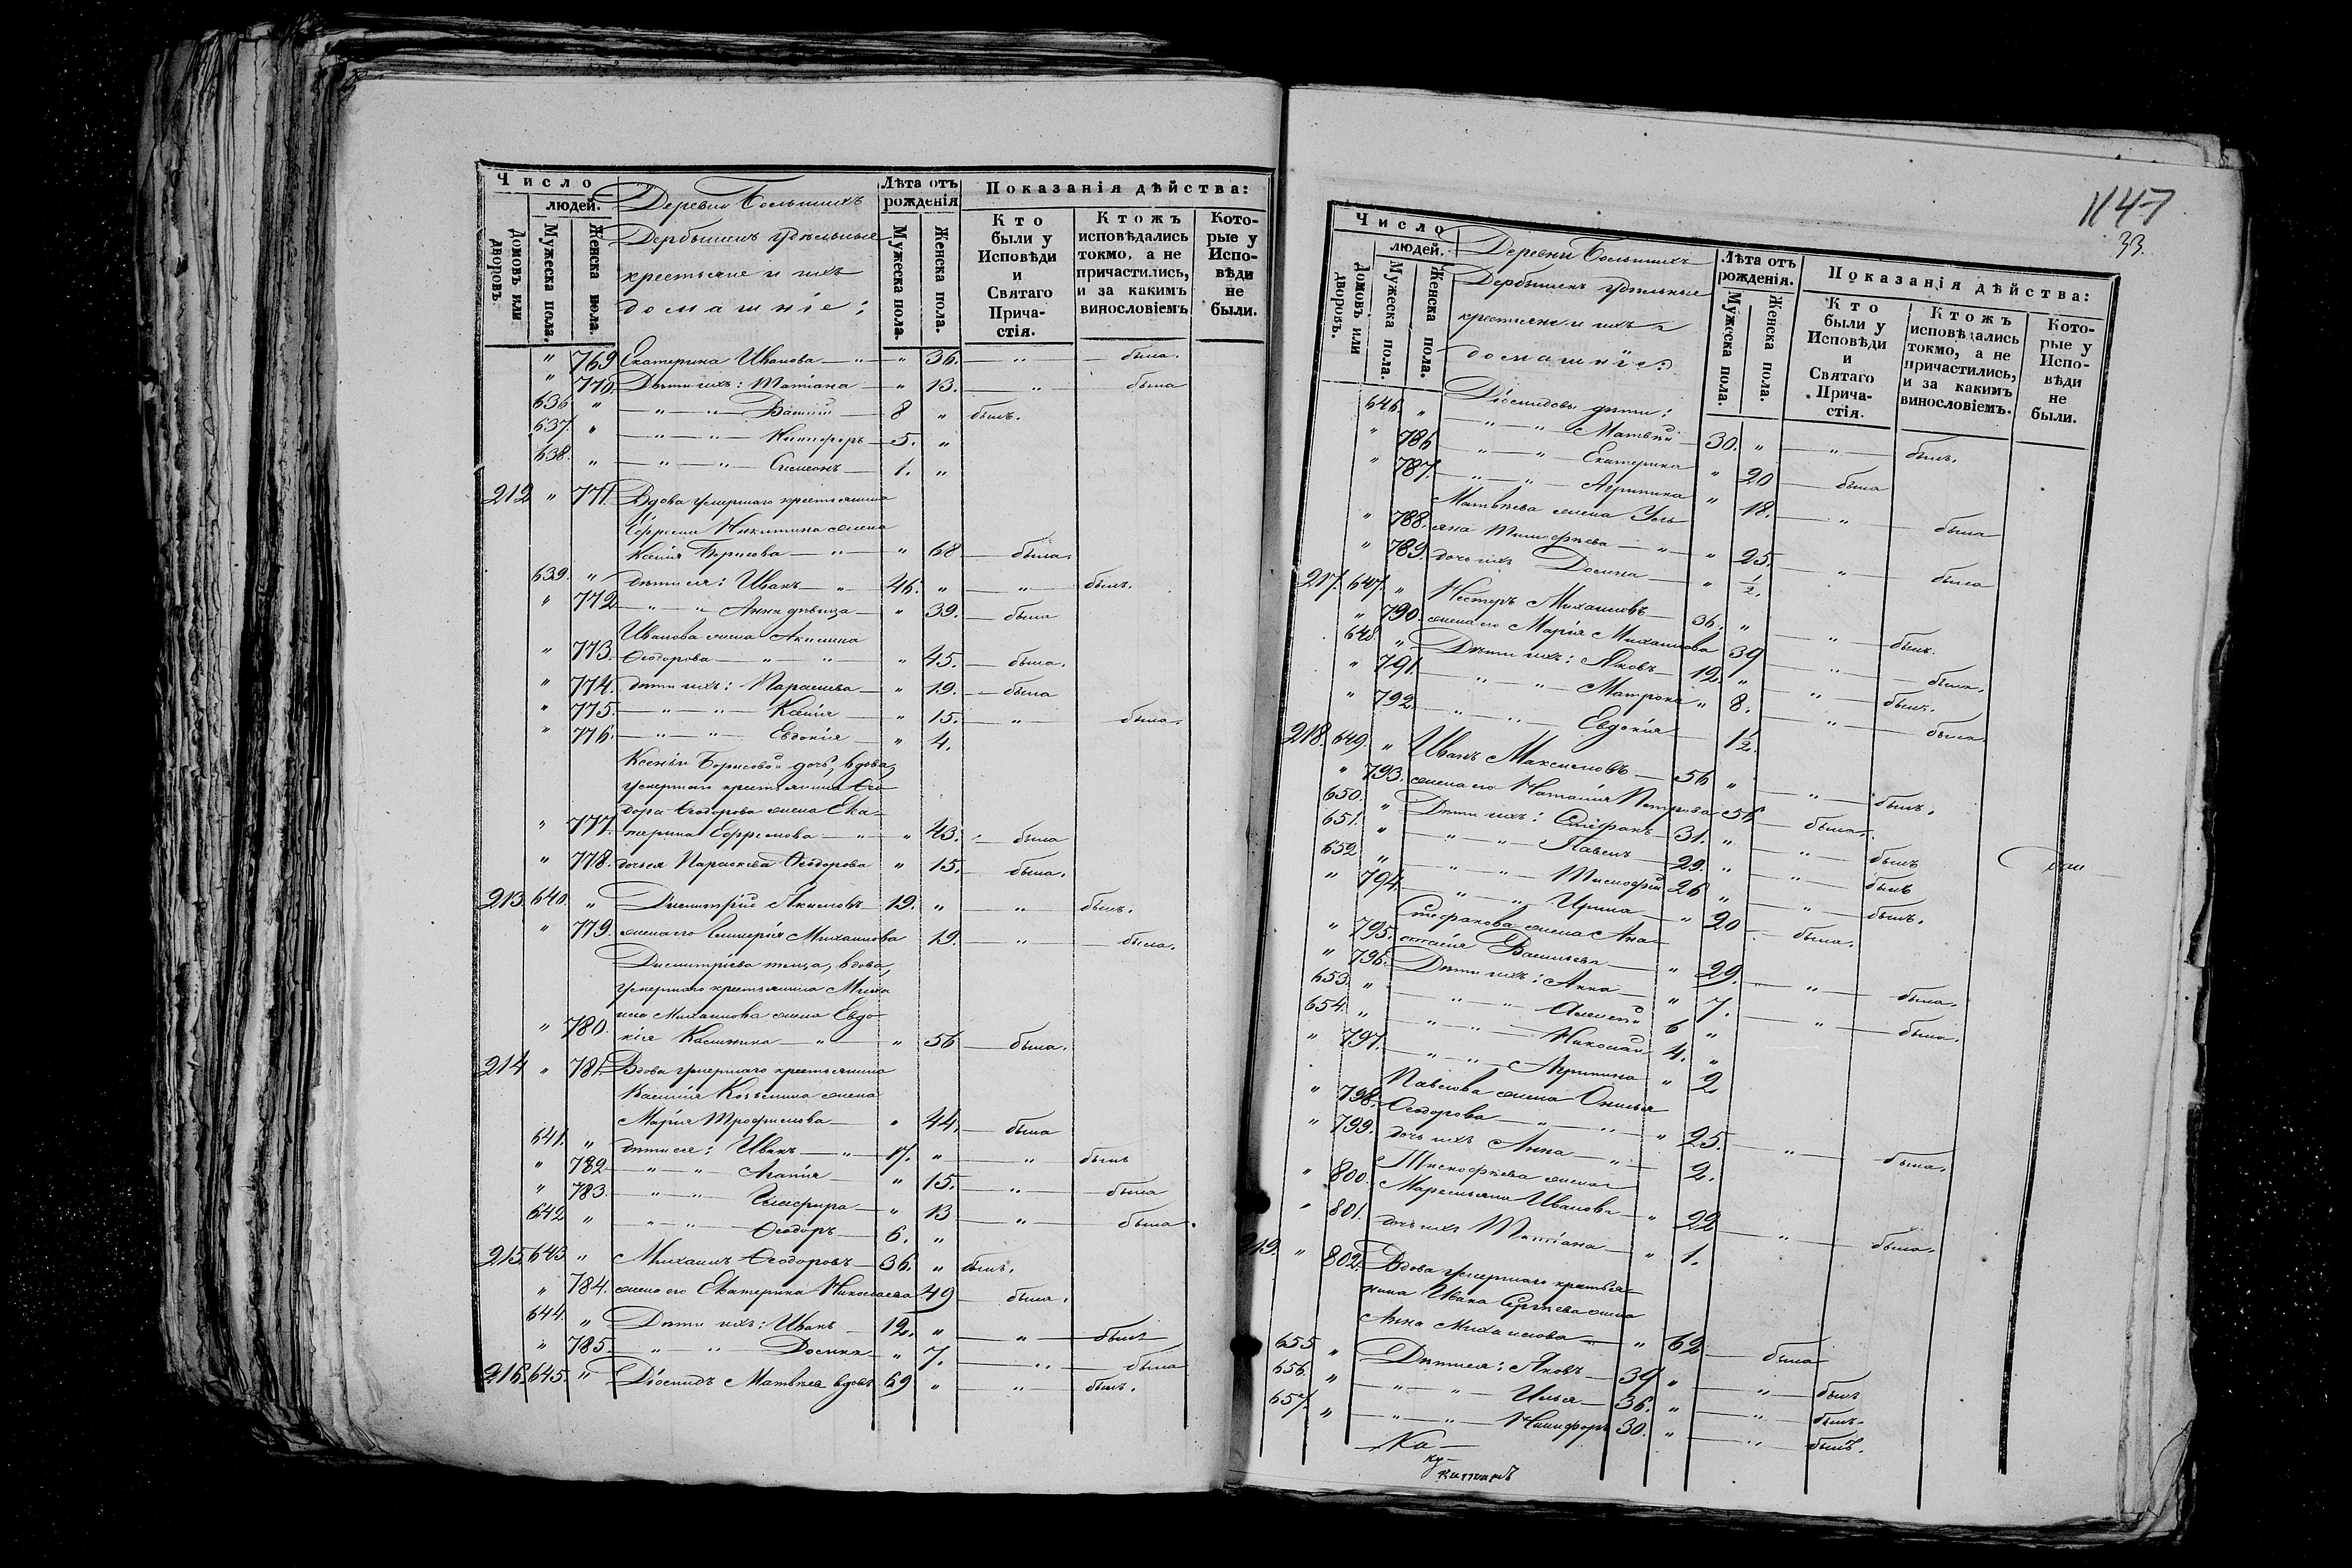 Число
людей.
Домовъ или дворовъ.
Мужеска пола.
Женска пола.
Деревни Большихъ
Дербышекъ удѣльные
крестьяне и ихъ
домашніе:
Лѣта отъ рожденія
Мужеска пола.
Женска пола.
Показанія дѣйства:
Кто были у Исповѣди и Святаго Прича-стія.
Ктожъ исповѣдались токмо, а не причастились, и за какимъ винословіемъ
Кото-рые у Испо-вѣди не были.
" 769 Екатерина Иванова — " — " 36. — " — была.
" 770. Дѣти ихъ: Татіана — " 13. — " — была
636 " — " — " — Василій — 8 " былъ.
637 " — " — " — Никифоръ — 5. "
638. " — " — " — Симеонъ — 1. "
212 " 771. Вдова умершаго крестьянина
Ефрема Никитина жена
Ксенія Борисова — " — " 68 — была.
639. " дѣти ея: Иванъ — " — 46. " — " — былъ.
" 772 — " — " Анна дѣвица — " 39. — была
Иванова жена Акилина
" 773. Ѳеодорова — " — " " 45. — была.
" 774. дѣти ихъ: Параскева — " 19. — была
" 775. — " — " — Ксенія — " 15. — " — была.
" 776. — " — " — Евдокія — " 4.
Ксеньи Борисовой дочь, вдова,
умершаго крестьянина Ѳео-
дора Ѳеодорова жена Ека-
" 777. терина Ефремова — " — " 43. — была
" 778. дочь ея Параскева Ѳеодорова " 15. — была.
213 640. " Димитрій Якимовъ — 19. " — " — былъ.
" 779. жена его Гликерія Михаилова 19. — " — была.
Димитріева теща, вдова,
умершаго крестьянина Миха
ила Михаилова жена Евдо-
" 780. кія Касьянина — " — " 56 — была.
214 " 781. Вдова умершаго крестьянина
Василія Козьмина жена
Марія Трофимова — " 44. — была
641. " дѣти ея: Иванъ — " — 17. " — " — былъ
" 782 — " — " — Агапія — " 15. — " — была
" 783. — " — " — Глафира — " 13 — " — была.
642 " — " — " — Ѳеодоръ — 6. "
215. 643 " Михаилъ Ѳеодоровъ — 36. " былъ.
" 784. жена его Екатерина Николаева 49 — была.
644. " Дѣти ихъ: Иванъ — 12. " — " — былъ
" 785. — " — " — Домна — " 7. — " — была
216. 645. " Діомидъ Матвѣевъ вдовъ 69 " — " — былъ.
1147
33.
Число
людей.
Домовъ или дворовъ.
Мужеска пола.
Женска пола.
Деревни Большихъ
Дербышекъ удѣльные
крестьяне и ихъ
домашніе:
Лѣта отъ рожденія.
Мужеска пола.
Женска пола.
Показанія дѣйства:
Кто были у Исповѣди и Святаго Прича-стія.
Ктожъ исповѣдались токмо, а не причастились, и за какимъ винословіемъ.
Кото-рые у Испо-вѣди не были.
Діомидовы дѣти:
646. " — " — " — Матвѣй — 30. " — " — былъ.
" 786 — " — " — Екатерина " 20 — была
" 787. — " — " — Агрипина " 18. — " — была
Матвѣева жена Уль
" 788. яна Тимофѣева — " — " 25. — " — была
" 789. дочь ихъ Домна — " 1/2.
217. 647. " Нестеръ Михаиловъ — 36. " — " — былъ.
" 790. жена его Марія Михаилова 39 — " — была.
648. " Дѣти ихъ: Яковъ — 12. " — " — былъ.
" 791. — " — " — Матрона " 8. — " — была.
" 792. — " — " — Евдокія — 1 1/2.
218. 649. " Иванъ Максимовъ — 56 " — " — былъ.
" 793. жена его Наталія Петрова 56 — была.
650. " Дѣти ихъ: Стефанъ — 31. " — " — былъ
651. " — " — " — Павелъ — 29. " — " — былъ
652 " — " — " — Тимофѣй 26 " — " — былъ.
" 794. — " — " — Ирина — " 20 — была.
Стефанова жена Ана-
" 795. стасія Васильева — " 29. — " — была.
" 796. Дѣти ихъ: Анна — " 7. — " — была.
653. " — " — " — Алексѣй 6 "
654. " — " — " — Николай 4. "
" 797. — " — " — Агрипина " 2
Павлова жена Ониья
" 798. Ѳеодорова — " — " — " 25. — " — была.
" 799. дочь ихъ Анна — " — 2.
Тимофѣева жена
" 800. Маремьяна Иванова — " 22 — " — была.
" 801. дочь ихъ Татіана — " 1.
219. " 802. Вдова умершаго крестья-
нина Ивана Сергѣева жена
Анна Михаилова — " 62 — была
655 " Дѣти ея: Яковъ — 39 " — " — былъ
656. " — " — " — Илья — 36. " — " — былъ.
657. " — " — " — Никифоръ 30. " — " — былъ.